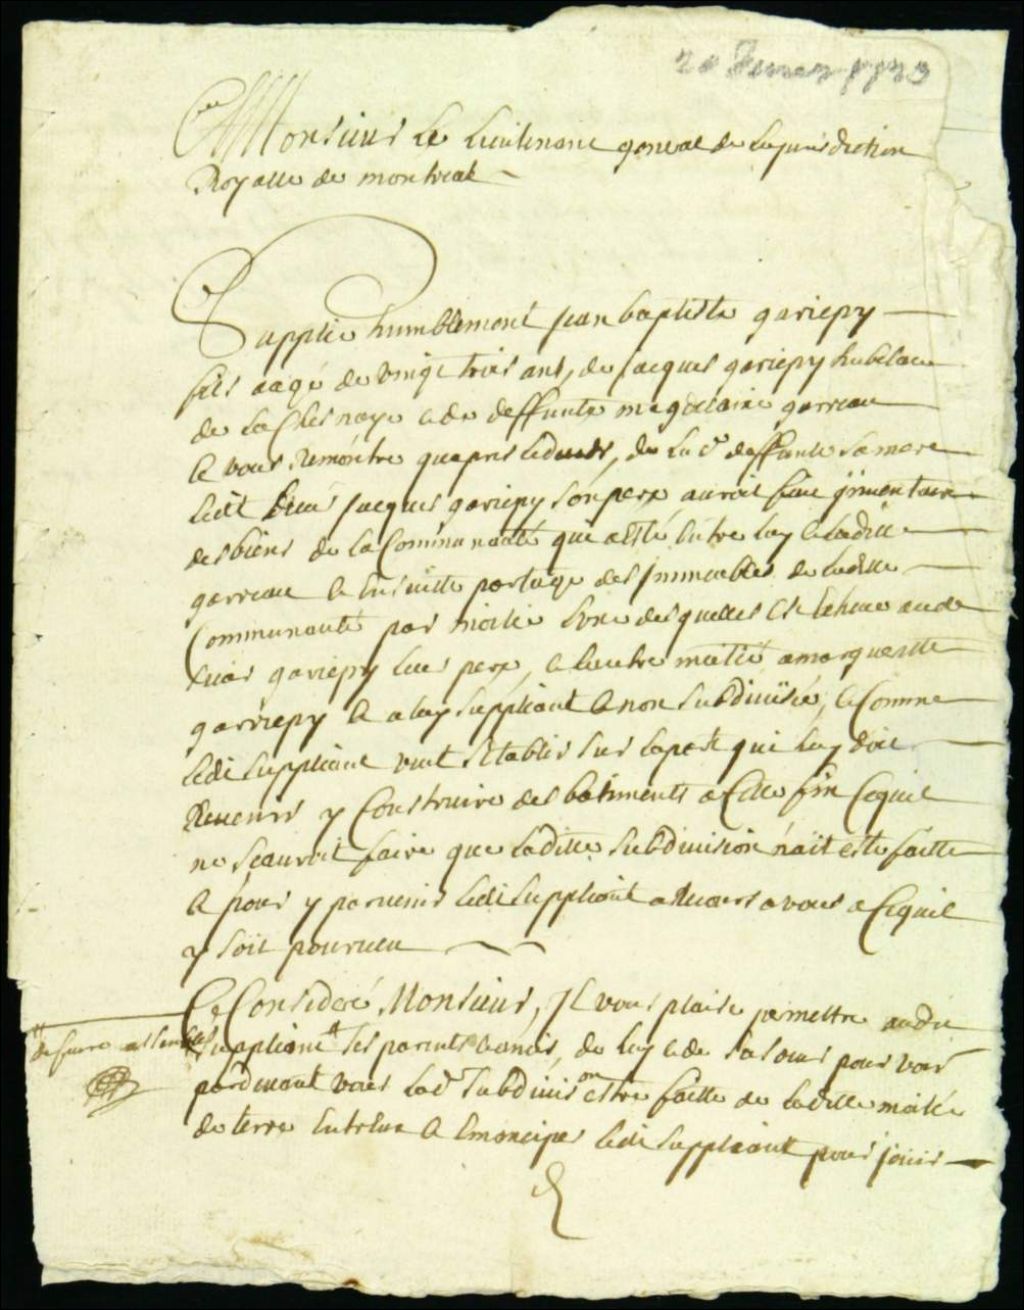 Monsieur Le Lieutenant general de la jurisdiction
Royalle de montreal
Supplie humblement jean baptiste gariepy
fils aagé de vingt trois ans, de jacques gariepy habitant
de La Chesnaye et de deffunte magdelaine garreau
et vous Remontre quapres le deceds, de lad.e deffunte sa mere
ledit jacques gariepy son pere auroit fait jnventaire
des biens de la Communauté qui a esté entre luy et ladite
garreau et ensuitte partage des jmmeubles de ladite
Communauté par moitié L'une desquelles est echue aud.
gariepy leur pere, et l'autre moitié a marguerite
garriepy et a luy suppliant et non subdivisée, et Comme
ledit suppliant veut s'etablir sur la part qui luy doit
Revenir y Construire des batiments a cette fin Ce quil
ne scauroit faire que ladite subdivision n'ait esté faitte
et pour y parvenir ledit suppliant a Recours a vous a Ce quil
y soit pourveu
Ce Consideré Monsieur, Jl vous plaise permettre audit
suppliant # ses parents et amis, de luy et de sa soeur pour voir
# de faire assembler
pardevant vous lad.e subdivision estre faitte de ladite moitié
de terre entr'eux et emanciper ledit suppliant pour jouir